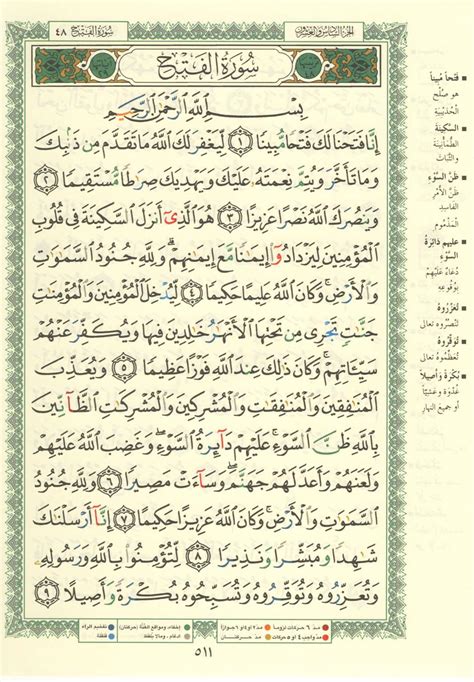 الجزء السادس والعشرون
سورة الفتح ٤٨
سورة الفتح
بِسْمِ ٱللَّهِ ٱلرَّحْمَٰنِ ٱلرَّحِيمِ
إِنَّا فَتَحْنَا لَكَ فَتْحًا مُّبِينًا ١ لِّيَغْفِرَ لَكَ ٱللَّهُ مَا تَقَدَّمَ مِن ذَنۢبِكَ
وَمَا تَأَخَّرَ وَيُتِمَّ نِعْمَتَهُۥ عَلَيْكَ وَيَهْدِيَكَ صِرَٰطًا مُّسْتَقِيمًا ٢
وَيَنصُرَكَ ٱللَّهُ نَصْرًا عَزِيزًا ٣ هُوَ ٱلَّذِىٓ أَنزَلَ ٱلسَّكِينَةَ فِى قُلُوبِ
ٱلْمُؤْمِنِينَ لِيَزْدَادُوٓا۟ إِيمَٰنًا مَّعَ إِيمَٰنِهِمْ ۗ وَلِلَّهِ جُنُودُ ٱلسَّمَٰوَٰتِ
وَٱلْأَرْضِ ۚ وَكَانَ ٱللَّهُ عَلِيمًا حَكِيمًا ٤ لِّيُدْخِلَ ٱلْمُؤْمِنِينَ وَٱلْمُؤْمِنَٰتِ
جَنَّٰتٍ تَجْرِى مِن تَحْتِهَا ٱلْأَنْهَٰرُ خَٰلِدِينَ فِيهَا وَيُكَفِّرَ عَنْهُمْ
سَيِّـَٔاتِهِمْ ۚ وَكَانَ ذَٰلِكَ عِندَ ٱللَّهِ فَوْزًا عَظِيمًا ٥ وَيُعَذِّبَ
ٱلْمُنَٰفِقِينَ وَٱلْمُنَٰفِقَٰتِ وَٱلْمُشْرِكِينَ وَٱلْمُشْرِكَٰتِ ٱلظَّآنِّينَ
بِٱللَّهِ ظَنَّ ٱلسَّوْءِ ۚ عَلَيْهِمْ دَآئِرَةُ ٱلسَّوْءِ ۖ وَغَضِبَ ٱللَّهُ عَلَيْهِمْ
وَلَعَنَهُمْ وَأَعَدَّ لَهُمْ جَهَنَّمَ ۖ وَسَآءَتْ مَصِيرًا ٦ وَلِلَّهِ جُنُودُ
ٱلسَّمَٰوَٰتِ وَٱلْأَرْضِ ۚ وَكَانَ ٱللَّهُ عَزِيزًا حَكِيمًا ٧ إِنَّآ أَرْسَلْنَٰكَ
شَٰهِدًا وَمُبَشِّرًا وَنَذِيرًا ٨ لِّتُؤْمِنُوا۟ بِٱللَّهِ وَرَسُولِهِۦ
وَتُعَزِّرُوهُ وَتُوَقِّرُوهُ وَتُسَبِّحُوهُ بُكْرَةً وَأَصِيلًا ٩
فَتْحاً مُبِيناً
هو صلح
الحديبية
السَّكِينَةَ
الطمأنينة
والثبات
ظَنَّ السَّوْءِ
ظن الأمر
الفاسد
المذموم
عليهم دَائِرَةُ
السَّوْءِ
دعاء عليهم
بوقوعه
تُعَزِّرُوهُ
تنصروه تعالى
تُوَقِّرُوهُ
تعظموه تعالى
بُكْرَةً وَأَصِيلاً
غدوة وعشيا
أو جميع النهار
مد ٦ حركات لزوماً مد ٢ أو ٤ أو ٦ جوازاً
مد واجب ٤ أو ٥ حركات مد حركتان
إخفاء، ومواقع الغنة (حركتان) تفخيم الراء
ادغام، وما لا يلفظ قلقلة
٥١١